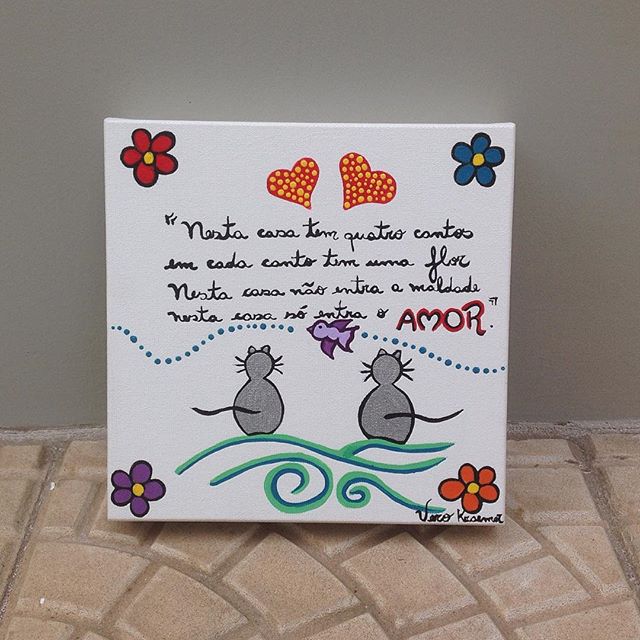 "Nesta casa tem quatro cantos
em cada canto tem uma flor
Nesta casa não entra a maldade
nesta casa só entra o AMOR."
Vero